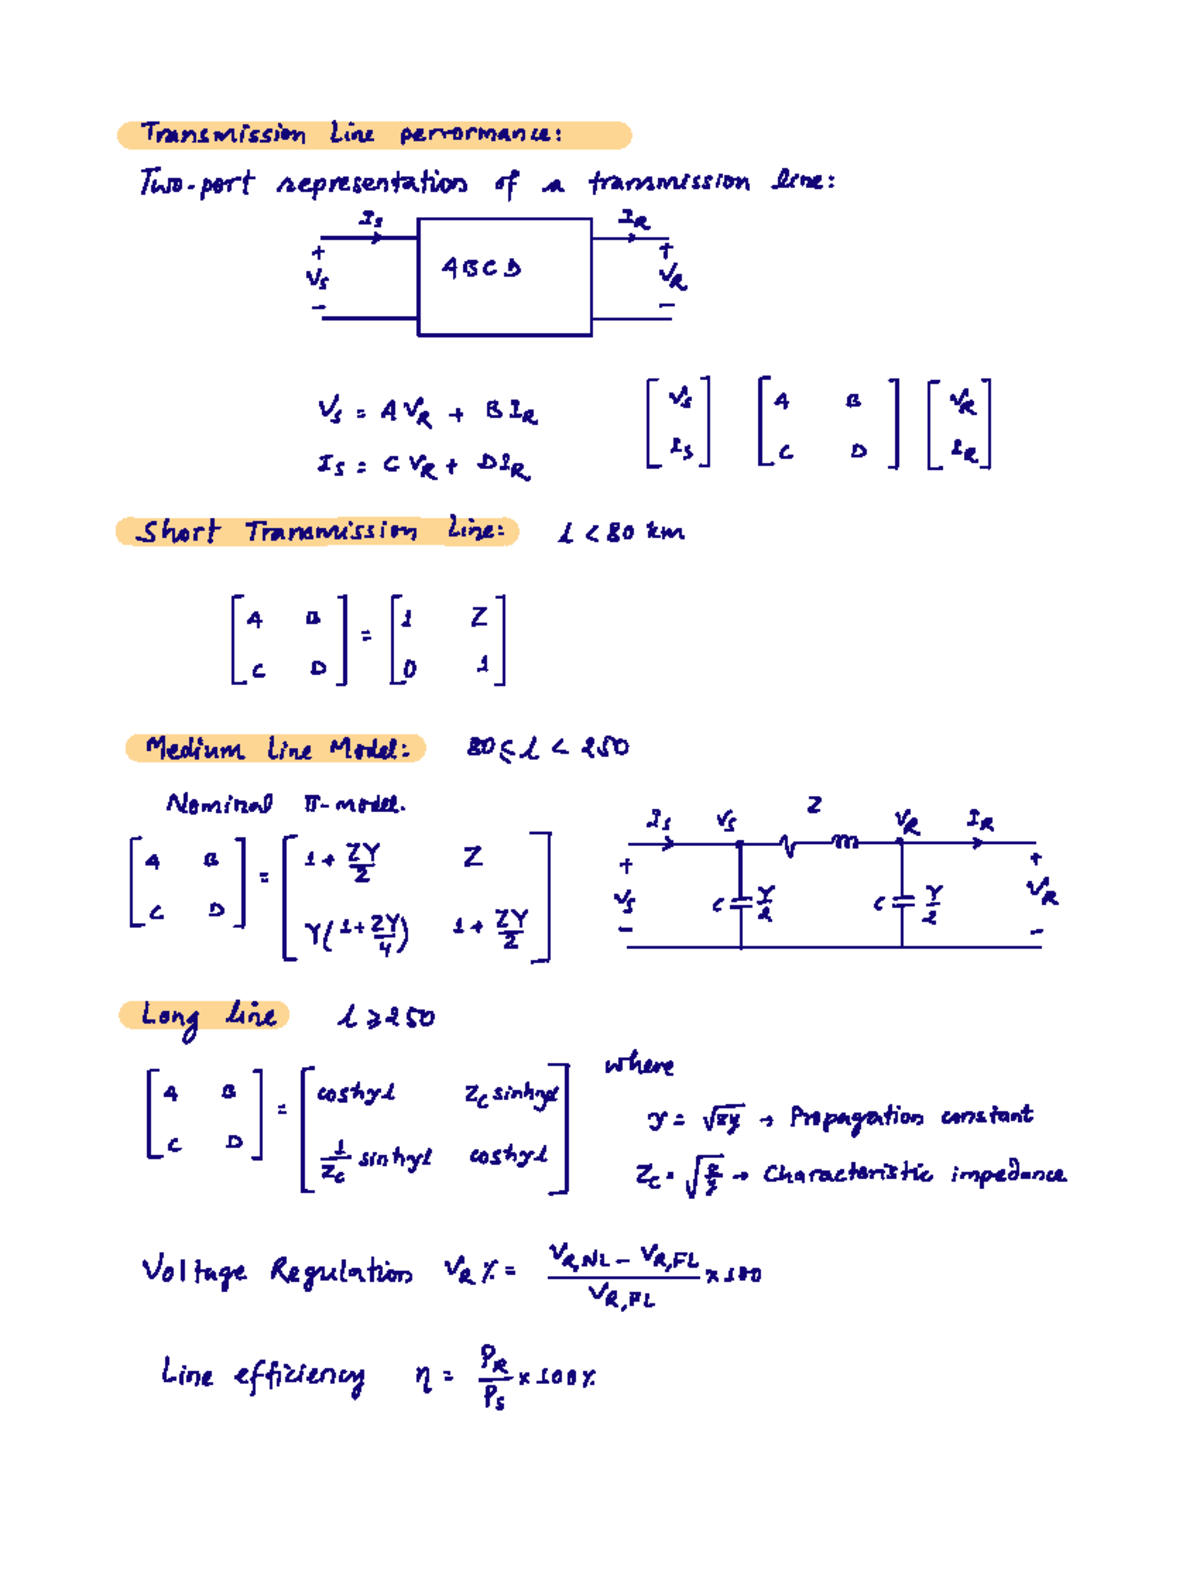 Transmission Line performance:
Two-port representation of a transmission line:
Is IR
+ +
Vs ABCD VR
- -
Vs = A VR + B IR
Is = C VR + D IR
[Vs Is] [A B C D] [VR IR]
Short Transmission Line: l < 80 km
[A B C D] = [1 Z 0 1]
Medium Line Model: 80 ≤ l < 250
Nominal π-model.
[A B C D] = [1 + ZY/2 Z Y(1 + ZY/4) 1 + ZY/2]
Is Vs Z VR IR
+ +
Vs C Y/2 C Y/2 VR
- -
Long line l ⩾ 250
[A B C D] = [coshγl Zc sinhγl 1/Zc sinhγl coshγl]
where
γ = √zy → Propagation constant
Zc = √z/y → Characteristic impedance
Voltage Regulation VR % = VR,NL - VR,FL / VR,FL × 100
Line efficiency η = PR/Ps × 100 %